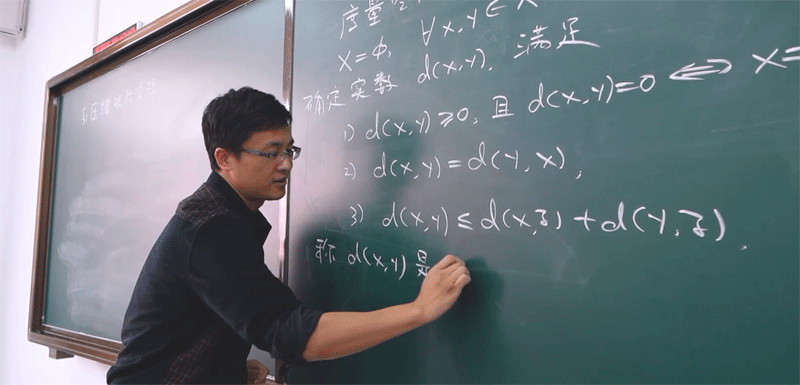 压缩映射
度量
X=Φ, ∀x,y∈X
确定实数 d(x,y). 满足
1) d(x,y)≥0, 且 d(x,y)=0 ⟺ x=
2) d(x,y)=d(y,x),
3) d(x,y)≤d(x,z)+d(y,z).
称 d(x,y) 是